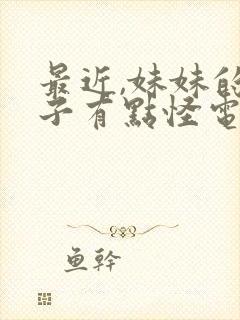 最近,妹妹的
子有點怪電
鱼幹